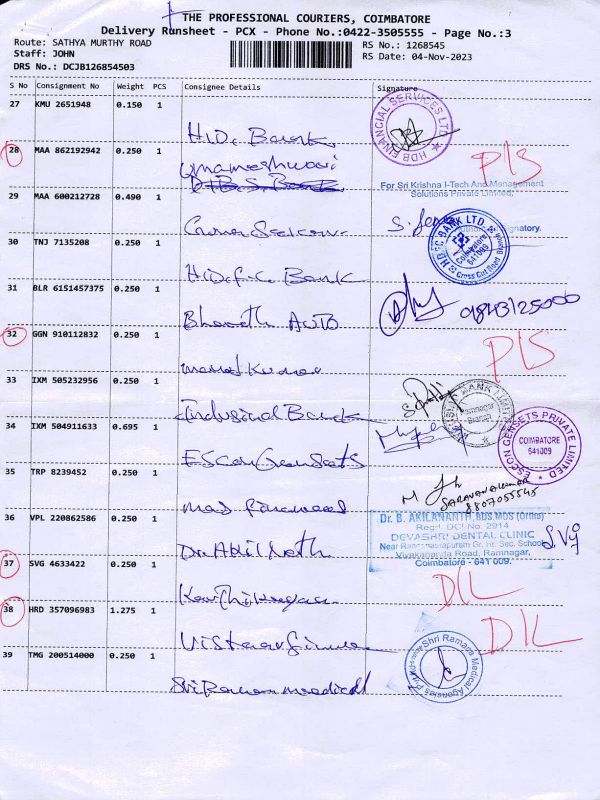 THE PROFESSIONAL COURIERS, COIMBATORE
Delivery Runsheet - PCX - Phone No.:0422-3505555 - Page No.:3
Route: SATHYA MURTHY ROAD
Staff: JOHN
DRS No.: DCJB126854503
RS No.: 1268545
RS Date: 04-Nov-2023
S No Consignment No Weight PCS Consignee Details Signature
27 KMU 2651948 0.150 1
HDB FINANCIAL SERVICES LTD
28 MAA 862192942 0.250 1
P/S
For Sri Krishna I-Tech And Management
Solutions Private Limited,
29 MAA 600212728 0.490 1
Signatory.
HDFC BANK LTD.
Coimbatore
641009
Cross Cut Road
30 TNJ 7135208 0.250 1
Bank
31 BLR 6151457375 0.250 1
Bharath Auto
9843125000
32 GGN 910112832 0.250 1
P/S
33 IXM 505232956 0.250 1
Indusind Bank
Ramnagar
Branch
34 IXM 504911633 0.695 1
Escon Gensets
ESCON GENSETS PRIVATE LIMITED
COIMBATORE
641009
35 TRP 8239452 0.250 1
8807055545
36 VPL 220862586 0.250 1
Dr. B. AKILANANTH, BDS,MDS (Ortho)
Regd. DCI No. 2914
DEVASHRI DENTAL CLINIC
Near Gr. hr. Sec. School
Vivekananda Road, Ramnagar,
Coimbatore - 641 009.
37 SVG 4633422 0.250 1
D/L
38 HRD 357096983 1.275 1
D/L
39 TMG 200514000 0.250 1
Sri Ramana medical
Shri Ramana Medical Agencies